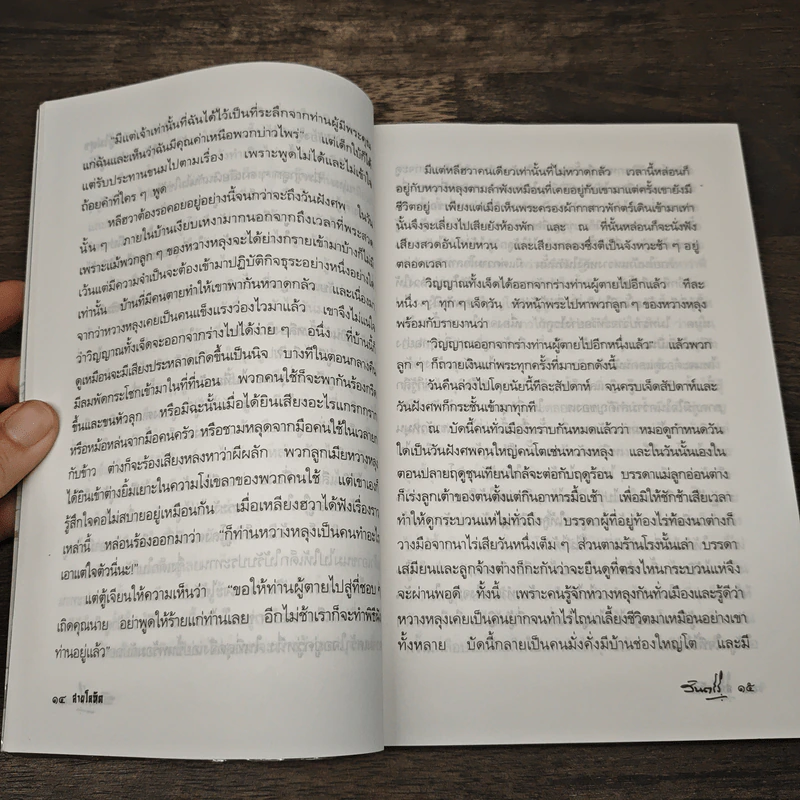 "มีแต่เจ้าเท่านั้นที่ฉันได้ไว้เป็นที่ระลึกจากท่านผู้มีพระคุณ
แก่ฉันและเห็นว่าฉันมีคุณค่าเหนือพวกบ่าวไพร่" แต่เด็กใบ้ก็ได้
แต่รับประทานขนมไปตามเรื่อง เพราะพูดไม่ได้และไม่เข้าใจ
ถ้อยคำที่ใคร ๆ พูด
หลีฮวาต้องรอคอยอยู่อย่างนี้จนกว่าจะถึงวันฝังศพ ในวัน
นั้น ๆ ภายในบ้านเงียบเหงามากนอกจากถึงเวลาที่พระสวด
เพราะแม้พวกลูก ๆ ของหวางหลุงจะได้ย่างกรายเข้ามาบ้างก็ไม่มี
เว้นแต่มีความจำเป็นจะต้องเข้ามาปฏิบัติกิจธุระอย่างหนึ่งอย่างใด
เท่านั้น บ้านที่มีคนตายทำให้เขาพากันหวาดกลัว และเนื่อง
จากว่าหวางหลุงเคยเป็นคนแข็งแรงว่องไวมาแล้ว เขาจึงไม่แน่ใจ
ว่าวิญญาณทั้งเจ็ดจะออกจากร่างไปได้ง่าย ๆ อนึ่ง ที่บ้านนี้
ดูเหมือนจะมีเสียงประหลาดเกิดขึ้นเป็นนิจ บางทีในตอนกลางคืน
มีลมพัดกระโชกเข้ามาในที่ที่นอน พวกคนใช้ก็จะพากันร้องกรีด
ขึ้นและขนหัวลุก หรือมิฉะนั้นเมื่อได้ยินเสียงอะไรแกรกกราก
หรือหม้อหล่นจากมือคนครัว หรือชามหลุดจากมือคนใช้ในเวลายก
กับข้าว ต่างก็จะร้องเสียงหลงหาว่าผีผลัก พวกลูกเมียหวางหลุง
ได้ยินเข้าต่างยิ้มเยาะในความโง่เขลาของพวกคนใช้ แต่เขาเองก็
รู้สึกใจคอไม่สบายอยู่เหมือนกัน เมื่อเหลียงฮวาได้ฟังเรื่องราว
เหล่านี้ หล่อนร้องออกมาว่า "ก็ท่านหวางหลุงเป็นคนทำอะไร
เอาแต่ใจตัวนี่นะ!"
แต่ตู้เจียนให้ความเห็นว่า "ขอให้ท่านผู้ตายไปสู่ที่ชอบ ๆ
เถิดคุณนาย อย่าพูดให้ร้ายแก่ท่านเลย อีกไม่ช้าเราก็จะทำพิธีฝัง
ท่านอยู่แล้ว"
๑๔ สายโลหิต
มีแต่หลีฮวาคนเดียวเท่านั้นที่ไม่หวาดกลัว เวลานี้หล่อนก็
อยู่กับหวางหลุงตามลำพังเหมือนที่เคยอยู่กับเขามาแต่ครั้งเขายังมี
ชีวิตอยู่ เพียงแต่เมื่อเห็นพระครองผ้ากาสาวพักตร์เดินเข้ามาเท่า
นั้นจึงจะเลี่ยงไปเสียยังห้องพัก และ ณ ที่นั้นหล่อนก็จะนั่งฟัง
เสียงสวดอันโหยหวน และเสียงกลองซึ่งตีเป็นจังหวะช้า ๆ อยู่
ตลอดเวลา
วิญญาณทั้งเจ็ดได้ออกจากร่างท่านผู้ตายไปอีกแล้ว ทีละ
หนึ่ง ๆ ทุก ๆ เจ็ดวัน หัวหน้าพระไปหาพวกลูก ๆ ของหวางหลุง
พร้อมกับรายงานว่า
"วิญญาณออกจากร่างท่านผู้ตายไปอีกหนึ่งแล้ว" แล้วพวก
ลูก ๆ ก็ถวายเงินแก่พระทุกครั้งที่มาบอกดังนี้
วันคืนล่วงไปโดยนัยนี้ทีละสัปดาห์ จนครบเจ็ดสัปดาห์และ
วันฝังศพก็กระชั้นเข้ามาทุกที
ณ บัดนี้คนทั่วเมืองทราบกันหมดแล้วว่า หมอดูกำหนดวัน
ใดเป็นวันฝังศพคนใหญ่คนโตเช่นหวางหลุง และในวันนั้นเองใน
ตอนปลายฤดูชุนเทียนใกล้จะต่อกับฤดูร้อน บรรดาแม่ลูกอ่อนต่าง
ก็เร่งลูกเต้าของตนตั้งแต่กินอาหารมื้อเช้า เพื่อมิให้ชักช้าเสียเวลา
ทำให้ดูกระบวนแห่ไม่ทั่วถึง บรรดาผู้ที่อยู่ท้องไร่ท้องนาต่างก็
วางมือจากนาไร่เสียวันหนึ่งเต็ม ๆ ส่วนตามร้านโรงนั้นเล่า บรรดา
เสมียนและลูกจ้างต่างก็กะกันว่าจะยืนดูที่ตรงไหนกระบวนแห่จึง
จะผ่านพอดี ทั้งนี้ เพราะคนรู้จักหวางหลุงกันทั่วเมืองและรู้ดีว่า
หวางหลุงเคยเป็นคนยากจนทำไร่ไถนาเลี้ยงชีวิตมาเหมือนอย่างเขา
ทั้งหลาย บัดนี้กลายเป็นคนมั่งคั่งมีบ้านช่องใหญ่โต และมี
๑๕